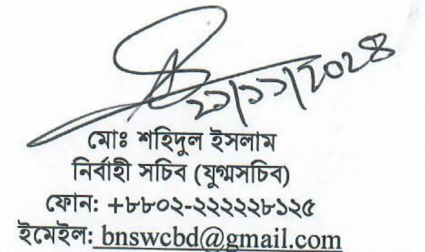 ২১/১১/২০২৪
মোঃ শহিদুল ইসলাম
নির্বাহী সচিব (যুগ্মসচিব)
ফোন: +৮৮০২-২২২২২৮১২৫
ইমেইল: bnswcbd@gmail.com